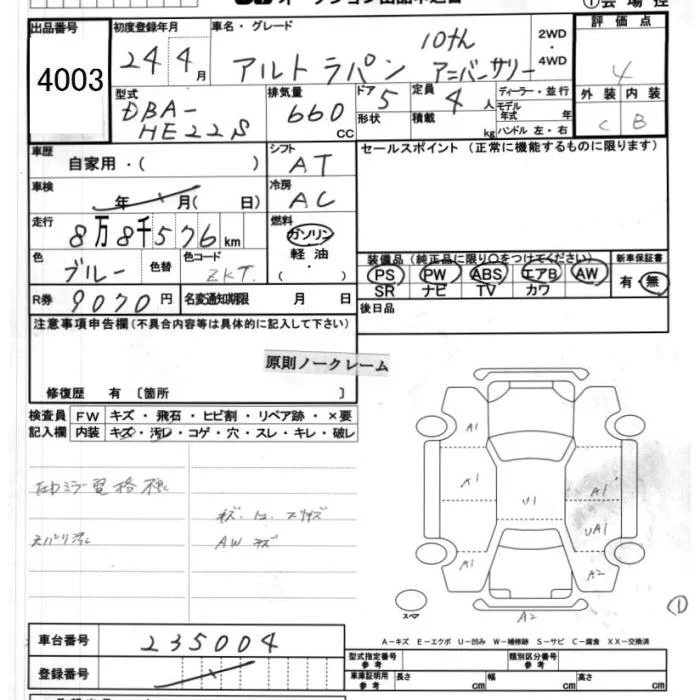 ①会場控
出品番号
4003
初度登録年月
24 4月
車名・グレード
アルトラパン 10th アニバーサリー
2WD・4WD
評価点
4
外装 内装
C B
型式
DBA-
HE22S
排気量
660 CC
ドア 5
形状
定員 4人
積載 kg
ディーラー・並行
モデル年式 年
ハンドル 左・右
車歴
自家用・( )
シフト
AT
セールスポイント (正常に機能するものに限ります)
車検
年 月( 日)
冷房
AC
走行
8万8千576km
燃料
ガソリン
軽油
・( )
色
ブルー
色替
色コード
ZKT
装備品 (純正品に限り○をつけてください)
PS PW ABS エアB AW
SR ナビ TV カワ
新車保証書
有・無
R券 9070円
名変通知期限 月 日
後日品
注意事項申告欄 (不具合内容等は具体的に記入して下さい)
原則ノークレーム
修復歴 有 〔箇所 〕
検査員 FW キズ・飛石・ヒビ割・リペア跡・×要
記入欄 内装 キズ・汚レ・コゲ・穴・スレ・キレ・破レ
キズ・
AW キズ
A1
A1
A1
U1
A1
UA1
A1
A2
A2
スペア
①
A－キズ E－エクボ U－凹み W－補修跡 S－サビ C－腐食 XX－交換済
車台番号 235004
登録番号
型式指定番号 参考
類別区分番号 参考
車庫証明用 参考
長さ cm 幅 cm 高さ cm